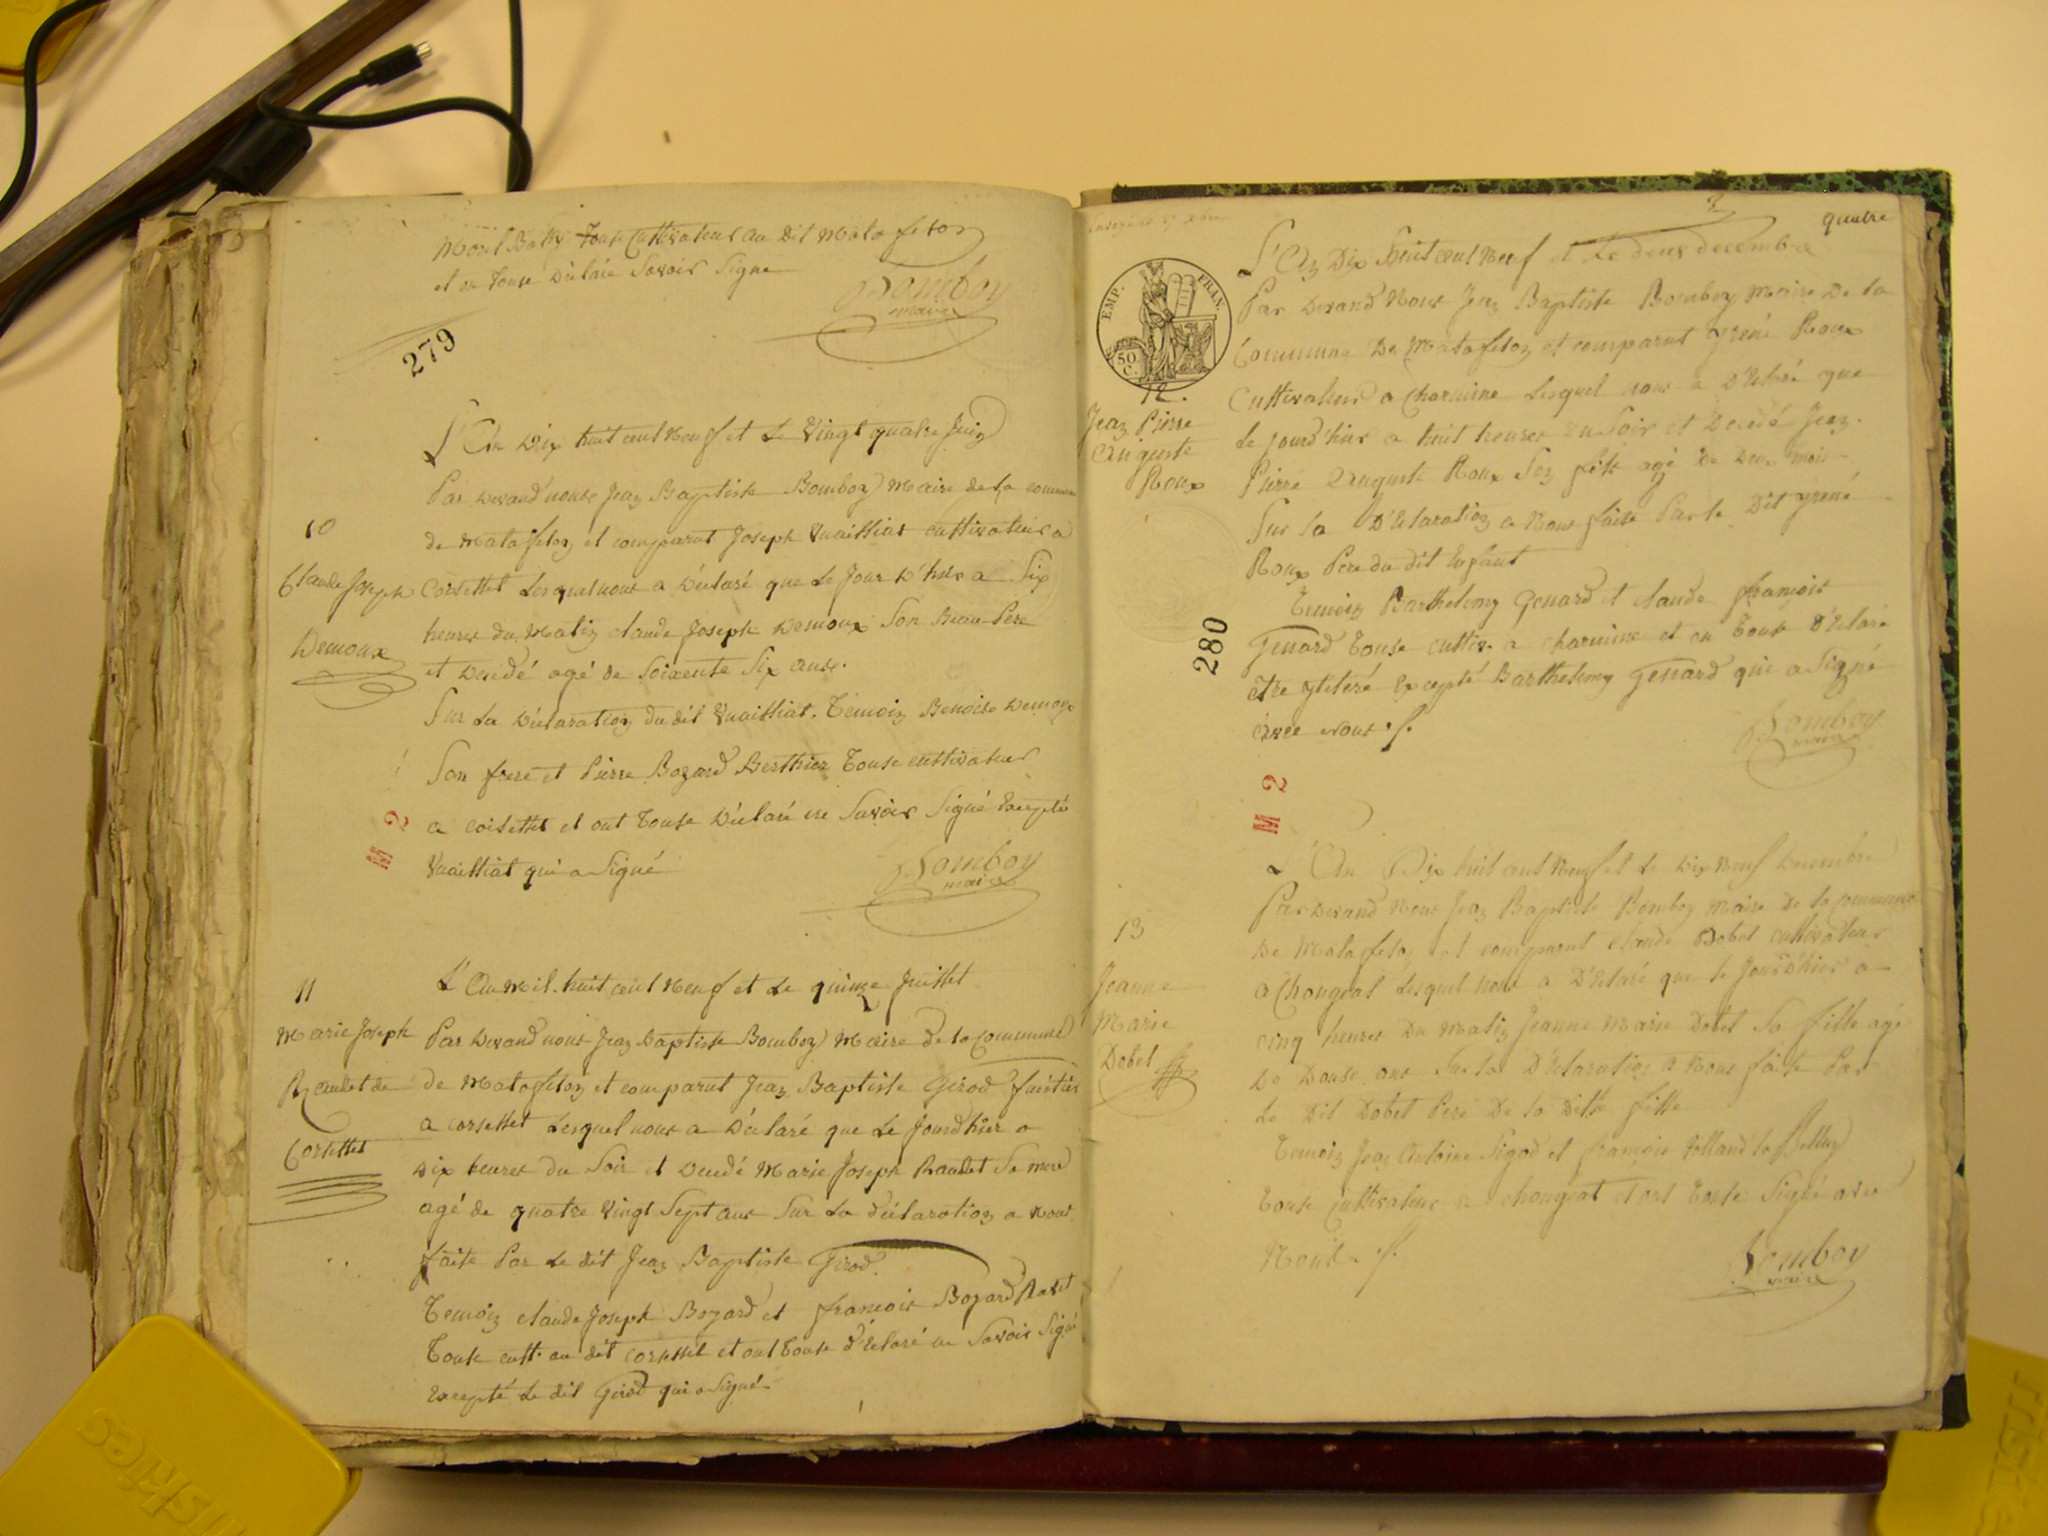 Mont Batty Touse Cultivateur au Dit Matafelon
et on Touse Déclaré Savoir Signe
Bomboy
maire
279
L'An Dix huit cent Neuf et Le Vingt quatre Juin
Par Devand nouse Jean Baptiste Bomboy Maire de la commune
10
de Matafelon et comparut Joseph Vuailliat cultivateur a
Claude Joseph
Demoux
Corsettet Lesquel nous a Déclaré que Le Jour D'hier a Six
heures du Matin claude Joseph Demoux Son Beau Père
et Decédé agé de Soixente Six anse.
Sur La Déclaration du dit Vuailliat. Temoin Benoise Demoux
Son frere et Pierre Bozard Berthier Touse cultivateur
a coisettet et ont Touse Déclaré ne Savoir Signé Excepté
Vuailliat qui a Signé
Bomboy
maire
M 2
11
Marie Joseph
Raculet de
Corsettet
L'An Mil huit cent Neuf et Le quinze Juillet
Par Devand nous Jean Baptiste Bomboy Maire de la Commune
de Matafelon et comparut Jean Baptiste Girod
a corsettet Lesquel nous a Déclaré que Le Jourd'hier a
Dix heures du Soir et Decedé Marie Joseph Raculet Sa mere
agé de quatre Vingt Sept ans Sur La déclaration a Nous
faite Par Le dit Jean Baptiste Girod.
Temoin claude Joseph Bozard et francois Bozard Ravet
Touse cult. au dit corsettet et ont Touse déclaré ne Savoir Signé
Excepté Le dit Girod qui a Signé
quatre
EMP. FRAN.
50
C.
12.
Jean Pierre
Auguste
Roux
L'An Dix Huit cent Neuf et Le deux decembre
Par Devand Nous Jean Baptiste Bomboy Maire De la
Commune De Matafelon et comparut yrené Roux
Cultivateur a Charmine Lesquel nous a D'claré que
Le jourd'hier a huit heures du Soir et Decedé Jean
Pierre Auguste Roux Son fils agé De Deux mois
Sur la D'claration a Nous faite Par le Dit yrené
Roux Pere du dit Enfant
Temoin Barthelemy Genard et claude françois
Genard Touse cultiv. a charmine et on Touse D'claré
etre yliteré Excepté Barthelemy Genard qui a Signé
avec nous
Bomboy
maire
280
M 2
13
Jeanne
Marie
Dobel
L'An Dix huit cent Neuf et Le Dix Neuf Decembre
Par Devand Nous Jean Baptiste Bomboy Maire De la commune
De Matafelon et comparut claude Dobel cultivateur
a Chongeat Lesquel nous a D'claré que le Jourd'hier a
cinq heures Du Matin Jeanne Marie Dobel Sa fille agé
De Douse ans Sur la D'claration a Nous faite Par
Le Dit Dobel Pere De la Ditte fille
Temoin Jean Antoine Sigod et françois
Touse Cultivateur a chongeat et ont Touse Signé avec
Nous
Bomboy
maire